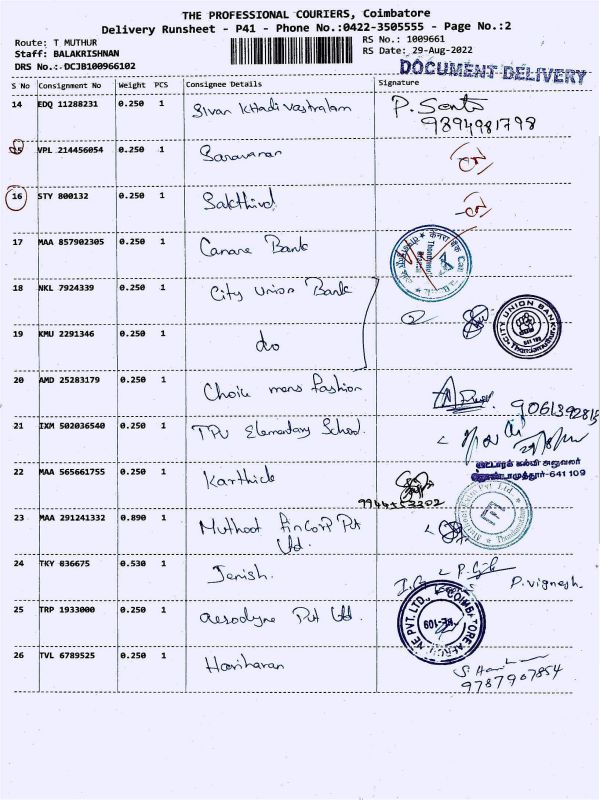 THE PROFESSIONAL COURIERS, Coimbatore
Delivery Runsheet - P41 - Phone No.:0422-3505555 - Page No.:2
Route: T MUTHUR
RS No.: 1009661
Staff: BALAKRISHNAN
RS Date: 29-Aug-2022
DRS No.:-DCJB100966102
DOCUMENT DELIVERY
S No Consignment No Weight PCS Consignee Details Signature
14 EDQ 11288231 0.250 1 Sivan Khadi Vastralam
9894981798
15 VPL 214456054 0.250 1 Saravanan
16 STY 800132 0.250 1 Sakthivel
17 MAA 857902305 0.250 1 Canara Bank
18 NKL 7924339 0.250 1 City Union Bank
CITY UNION BANK
19 KMU 2291346 0.250 1 do
20 AMD 25283179 0.250 1 Choice mens fashion
21 IXM 502036540 0.250 1 TPU Elementary School
வட்டாரக் கல்வி அலுவலர்
தொண்டாமுத்தூர்-641 109
22 MAA 565661755 0.250 1 Karthick
23 MAA 291241332 0.890 1 Muthoot Fincorp Pvt
Ltd.
24 TKY 036675 0.530 1 Jenish.
P. Vignesh.
25 TRP 1933000 0.250 1 aerodyne Pvt Ltd.
26 TVL 6789525 0.250 1 Hariharan
9787907854